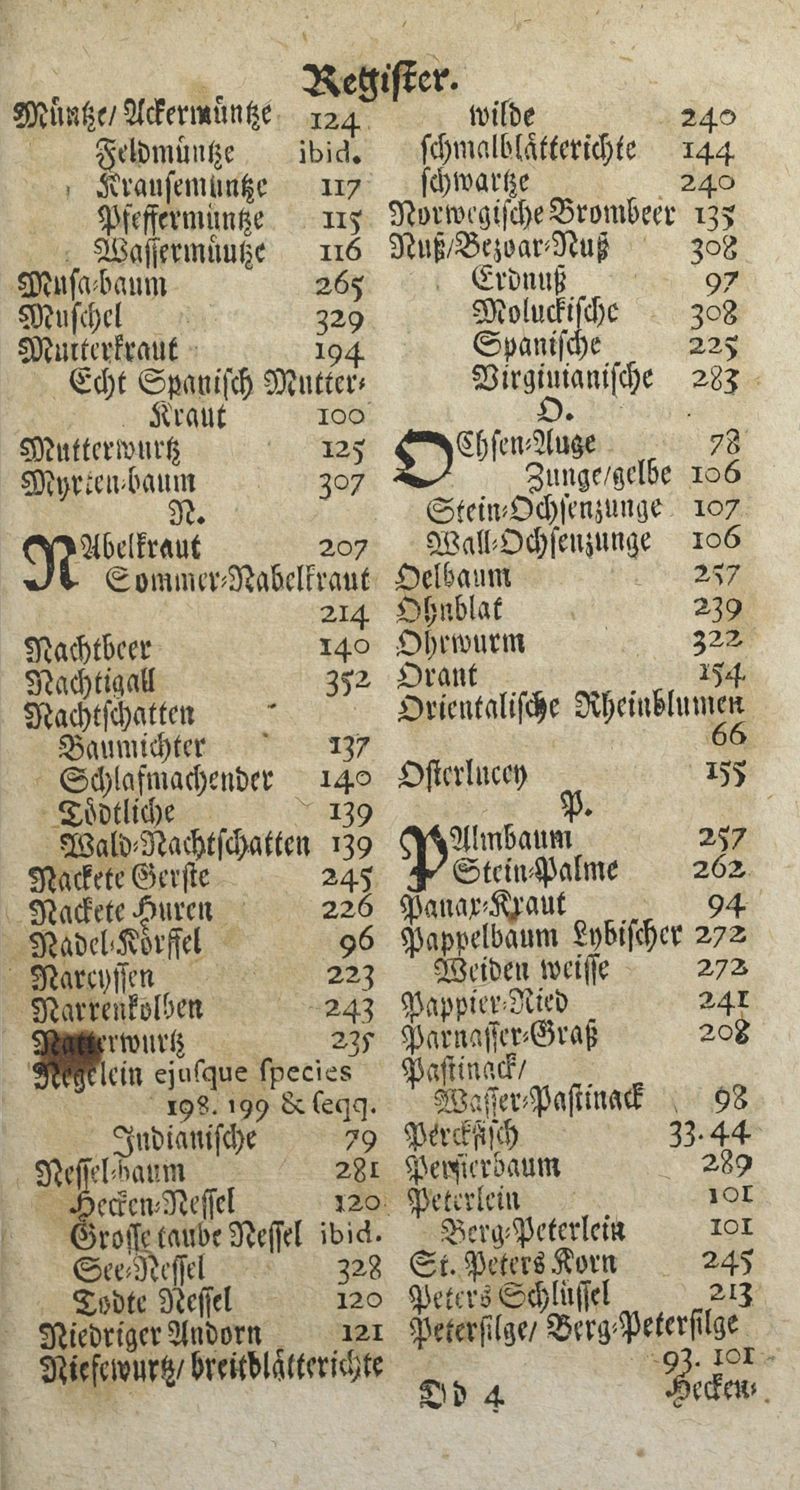 Register.
Müntze/ Ackermüntze 124
Feldmüntze ibid.
Krausemüntze 117
Pfeffermüntze 115
Wassermüntze 116
Musa-baum 265
Muschel 329
Mutterkraut 194
Echt Spanisch Mutter-
Kraut 100
Mutterwurtz 125
Myrten-baum 307
N.
NAbelkraut 207
Sommer-Nabelkraut
214
Nachtbeer 140
Nachtigall 352
Nachtschatten
Baumichter 137
Schlafmachender 140
Tödtliche 139
Wald-Nachtschatten 139
Nackete Gerste 245
Nackete Huren 226
Nadel-Körffel 96
Narcyssen 223
Narrenkolben 243
Natterwurtz 235
Negelein ejusque species
198. 199 & seqq.
Indianische 79
Nessel-baum 281
Hecken-Nessel 120
Grosse taube Nessel ibid.
See-Nessel 328
Todte Nessel 120
Niedriger Andorn 121
Niesewurtz/ breitblätterichte
wilde 240
schmalblätterichte 144
schwartze 240
Norwegische Brombeer 135
Nuß/Bezoar-Nuß 308
Erdnuß 97
Moluckische 308
Spanische 225
Virginianische 283
O.
OChsen-Auge 78
Zunge/gelbe 106
Stein-Ochsenzunge 107
Wall-Ochsenzunge 106
Oelbaum 257
Ohnblat 239
Ohrwurm 322
Orant 154
Orientalische Rheinblumen
66
Osterlucey 155
P.
PAlmbaum 257
Stein-Palme 262
Panax-Kraut 94
Pappelbaum Lybischer 272
Weiden weisse 272
Pappier-Ried 241
Parnasser-Graß 208
Pastinack/
Wasser-Pastinack 98
Perckfisch 33. 44
Persierbaum 289
Peterlein 101
Berg-Peterlein 101
St. Peters Korn 245
Peters Schlüssel 213
Petersilge/ Berg-Petersilge
93. 101
Dd 4 Hecken-